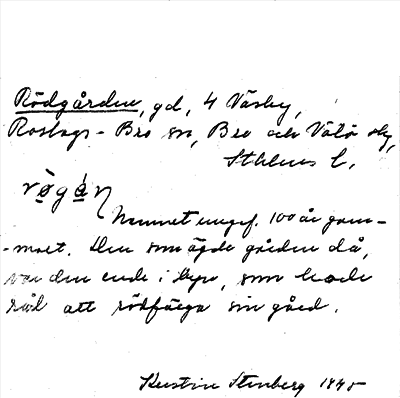 Rödgården, gd, 4 Väsby,
Roslags-Bro sn, Bro och Vätö skg,
Sthlms l.
Namnet ungef. 100 år gam-
-malt. Den som ägde gården då,
var den ende i byn, som hade
råd att rödfärga sin gård.
Kerstin Stenberg 1945